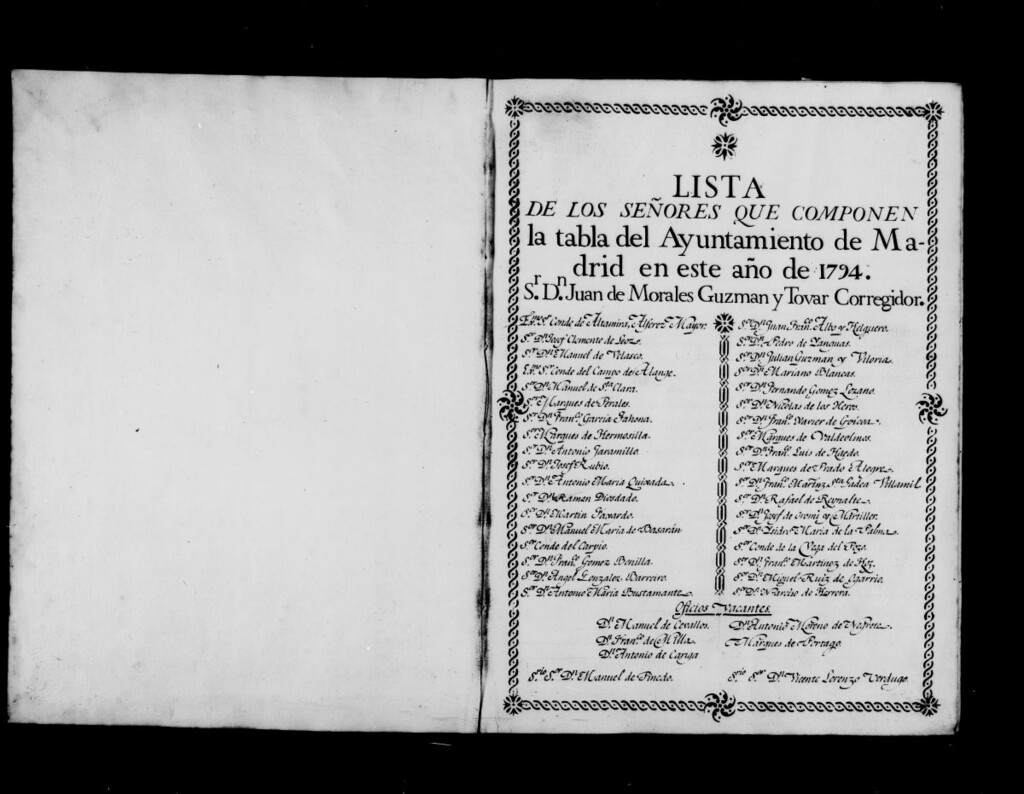 LISTA
DE LOS SEÑORES QUE COMPONEN
la tabla del Ayuntamiento de Ma-
drid en este año de 1794.
S.r D.n Juan de Morales Guzman y Tovar Corregidor.
Ex.mo S.r Conde de Altamira, Alferez Mayor.
S.r D.n Josef Clemente de
S.r D.n Manuel de Velasco.
Ex.mo S.r Conde del Campo de Alange.
S.r D.n Manuel de S.ta Clara.
S.r Marques de Perales.
S.r D.n Fran.co Garcia Tahona.
S.r Marques de Hermosilla.
S.r D.n Antonio Jaramillo.
S.r D.n Josef Rubio.
S.r D.n Antonio Maria Quixada.
S.r D.n Ramon Diosdado.
S.r D.n Martin Faxardo.
S.r D.n Manuel Maria de Basarán
S.r Conde del Carpio.
S.r D.n Fran.co Gomez Bonilla.
S.r D.n Angel Gonzalez Barreiro.
S.r D.n Antonio Maria Bustamante.
S.r D.n Juan Fran.co Albo y Helguero.
S.r D.n Pedro de
S.r D.n Julian Guzman y Vitoria.
S.r D.n Mariano Blancas.
S.r D.n Fernando Gomez Lozano.
S.r D.n Nicolas de los Heros.
S.r D.n Fran.co Xavier de Goicoa.
S.r Marques de Valdeolmos.
S.r D.n Fran.co Luis de Haedo.
S.r Marques de Prado Alegre.
S.r D.n Fran.co Martnz S.ta Gadea Villamil
S.r D.n Rafael de Reynalte.
S.r D.n Josef de Oromi y Martiller.
S.r D.n Isidro Maria de la Palma.
S.r Conde de la Vega del Pozo.
S.r D.n Fran.co Martinez de Hoz.
S.r D.n Miguel Ruiz de Ogarrio.
S.r D.n Narciso de Herrera.
Oficios Vacantes.
D.n Manuel de Cevallos.
D.n Fran.co de Milla.
D.n Antonio de Cariga
D.n Antonio Moreno de Negrete.
Marques de Portago.
S.rio S.r D.n Manuel de Pinedo.
S.rio S.r D.n Vicente Lorenzo Verdugo.